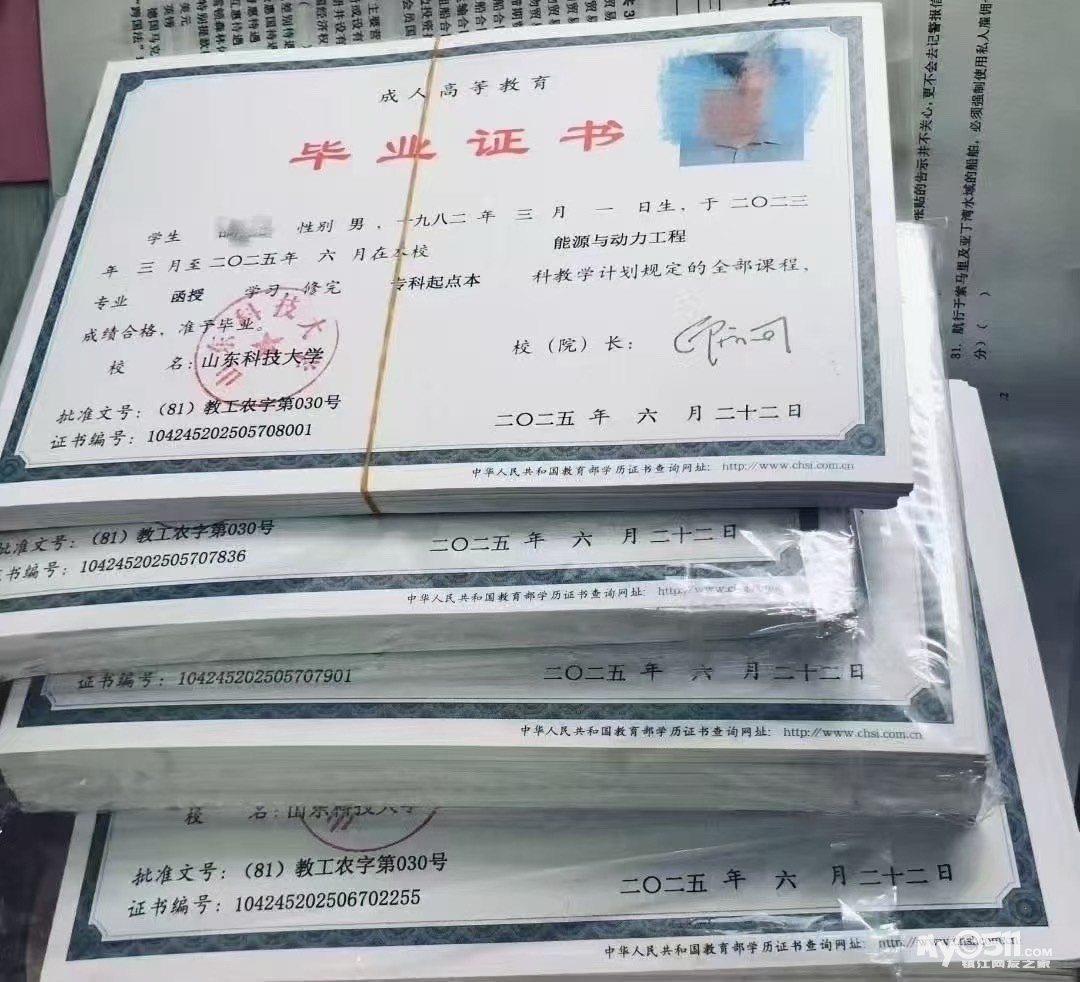 成人高等教育
毕业证书
学生 性别 男，一九八二年 三 月 一 日生，于二〇二三
年 三 月至二〇二五年 六 月在本校 能源与动力工程
专业 函授 学习，修完 专科起点本 科教学计划规定的全部课程，
成绩合格，准予毕业。
校 名：山东科技大学
校（院）长：
批准文号：（81）教工农字第030号
证书编号：104245202505708001
二〇二五 年 六 月 二十二 日
中华人民共和国教育部学历证书查询网址：http://www.chsi.com.cn
批准文号：（81）教工农字第030号
证书编号：104245202505707836
二〇二五 年 六 月 二十二 日
中华人民共和国教育部学历证书查询网址：
证书编号：104245202505707901
二〇二五 年 六 月 二十二 日
中华人民共和国教育部学历证书查询网址：http://www.chsi.com.cn
校 名：山东科技大学
批准文号：（81）教工农字第030号
证书编号：104245202506702255
二〇二五 年 六 月 二十二 日
中华人民共和国教育部学历证书查询网址：http://www.chsi.com.cn
张贴的告示并不关心，更不会去记警报信
81. 航行于索马里及亚丁湾水域的船舶，必须强制使用私人雇佣
分）（ ）
2
My0511.COM
镇江网友之家